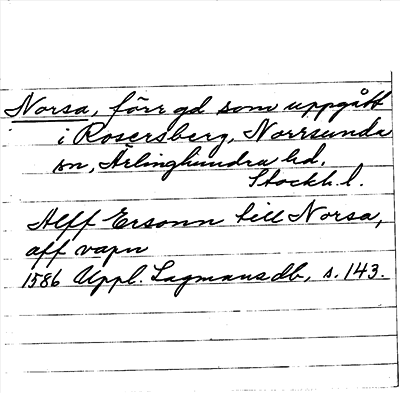 Norsa, förr gd som uppgått
i Rosersberg, Norrsunda
sn, Ärlinghundra hd,
Stockh. l.
Alff Ersonn till Norsa,
aff vapn
1586 Uppl. Lagmansdb, s. 143.